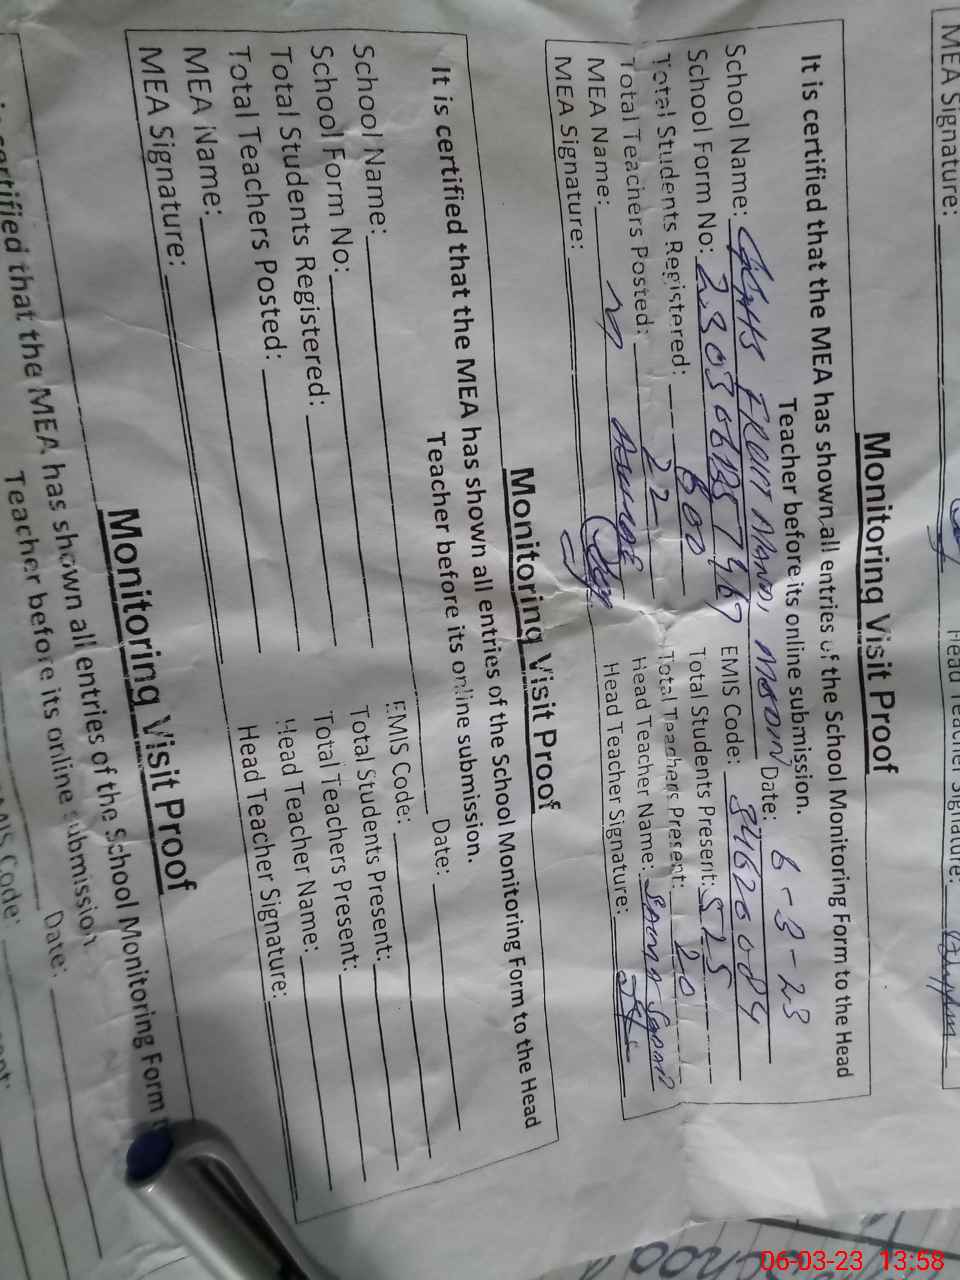 MEA Signature:
Head Teacher Signature:
Monitoring Visit Proof
It is certified that the MEA has shown all entries of the School Monitoring Form to the Head
Teacher before its online submission.
School Name: Date: 6-3-23
School Form No: EMIS Code: 34620084
Total Students Registered: 600 Total Students Present: 525
Total Teachers Posted: 22 Total Teachers Present: 20
MEA Name: Head Teacher Name:
MEA Signature: Head Teacher Signature:
Monitoring Visit Proof
It is certified that the MEA has shown all entries of the School Monitoring Form to the Head
Teacher before its online submission.
School Name: Date:
School Form No: EMIS Code:
Total Students Registered: Total Students Present:
Total Teachers Posted: Total Teachers Present:
MEA Name: Head Teacher Name:
MEA Signature: Head Teacher Signature:
Monitoring Visit Proof
is certified that the MEA has shown all entries of the School Monitoring Form
Teacher before its online submission
Date:
Code:
06-03-23 13:58